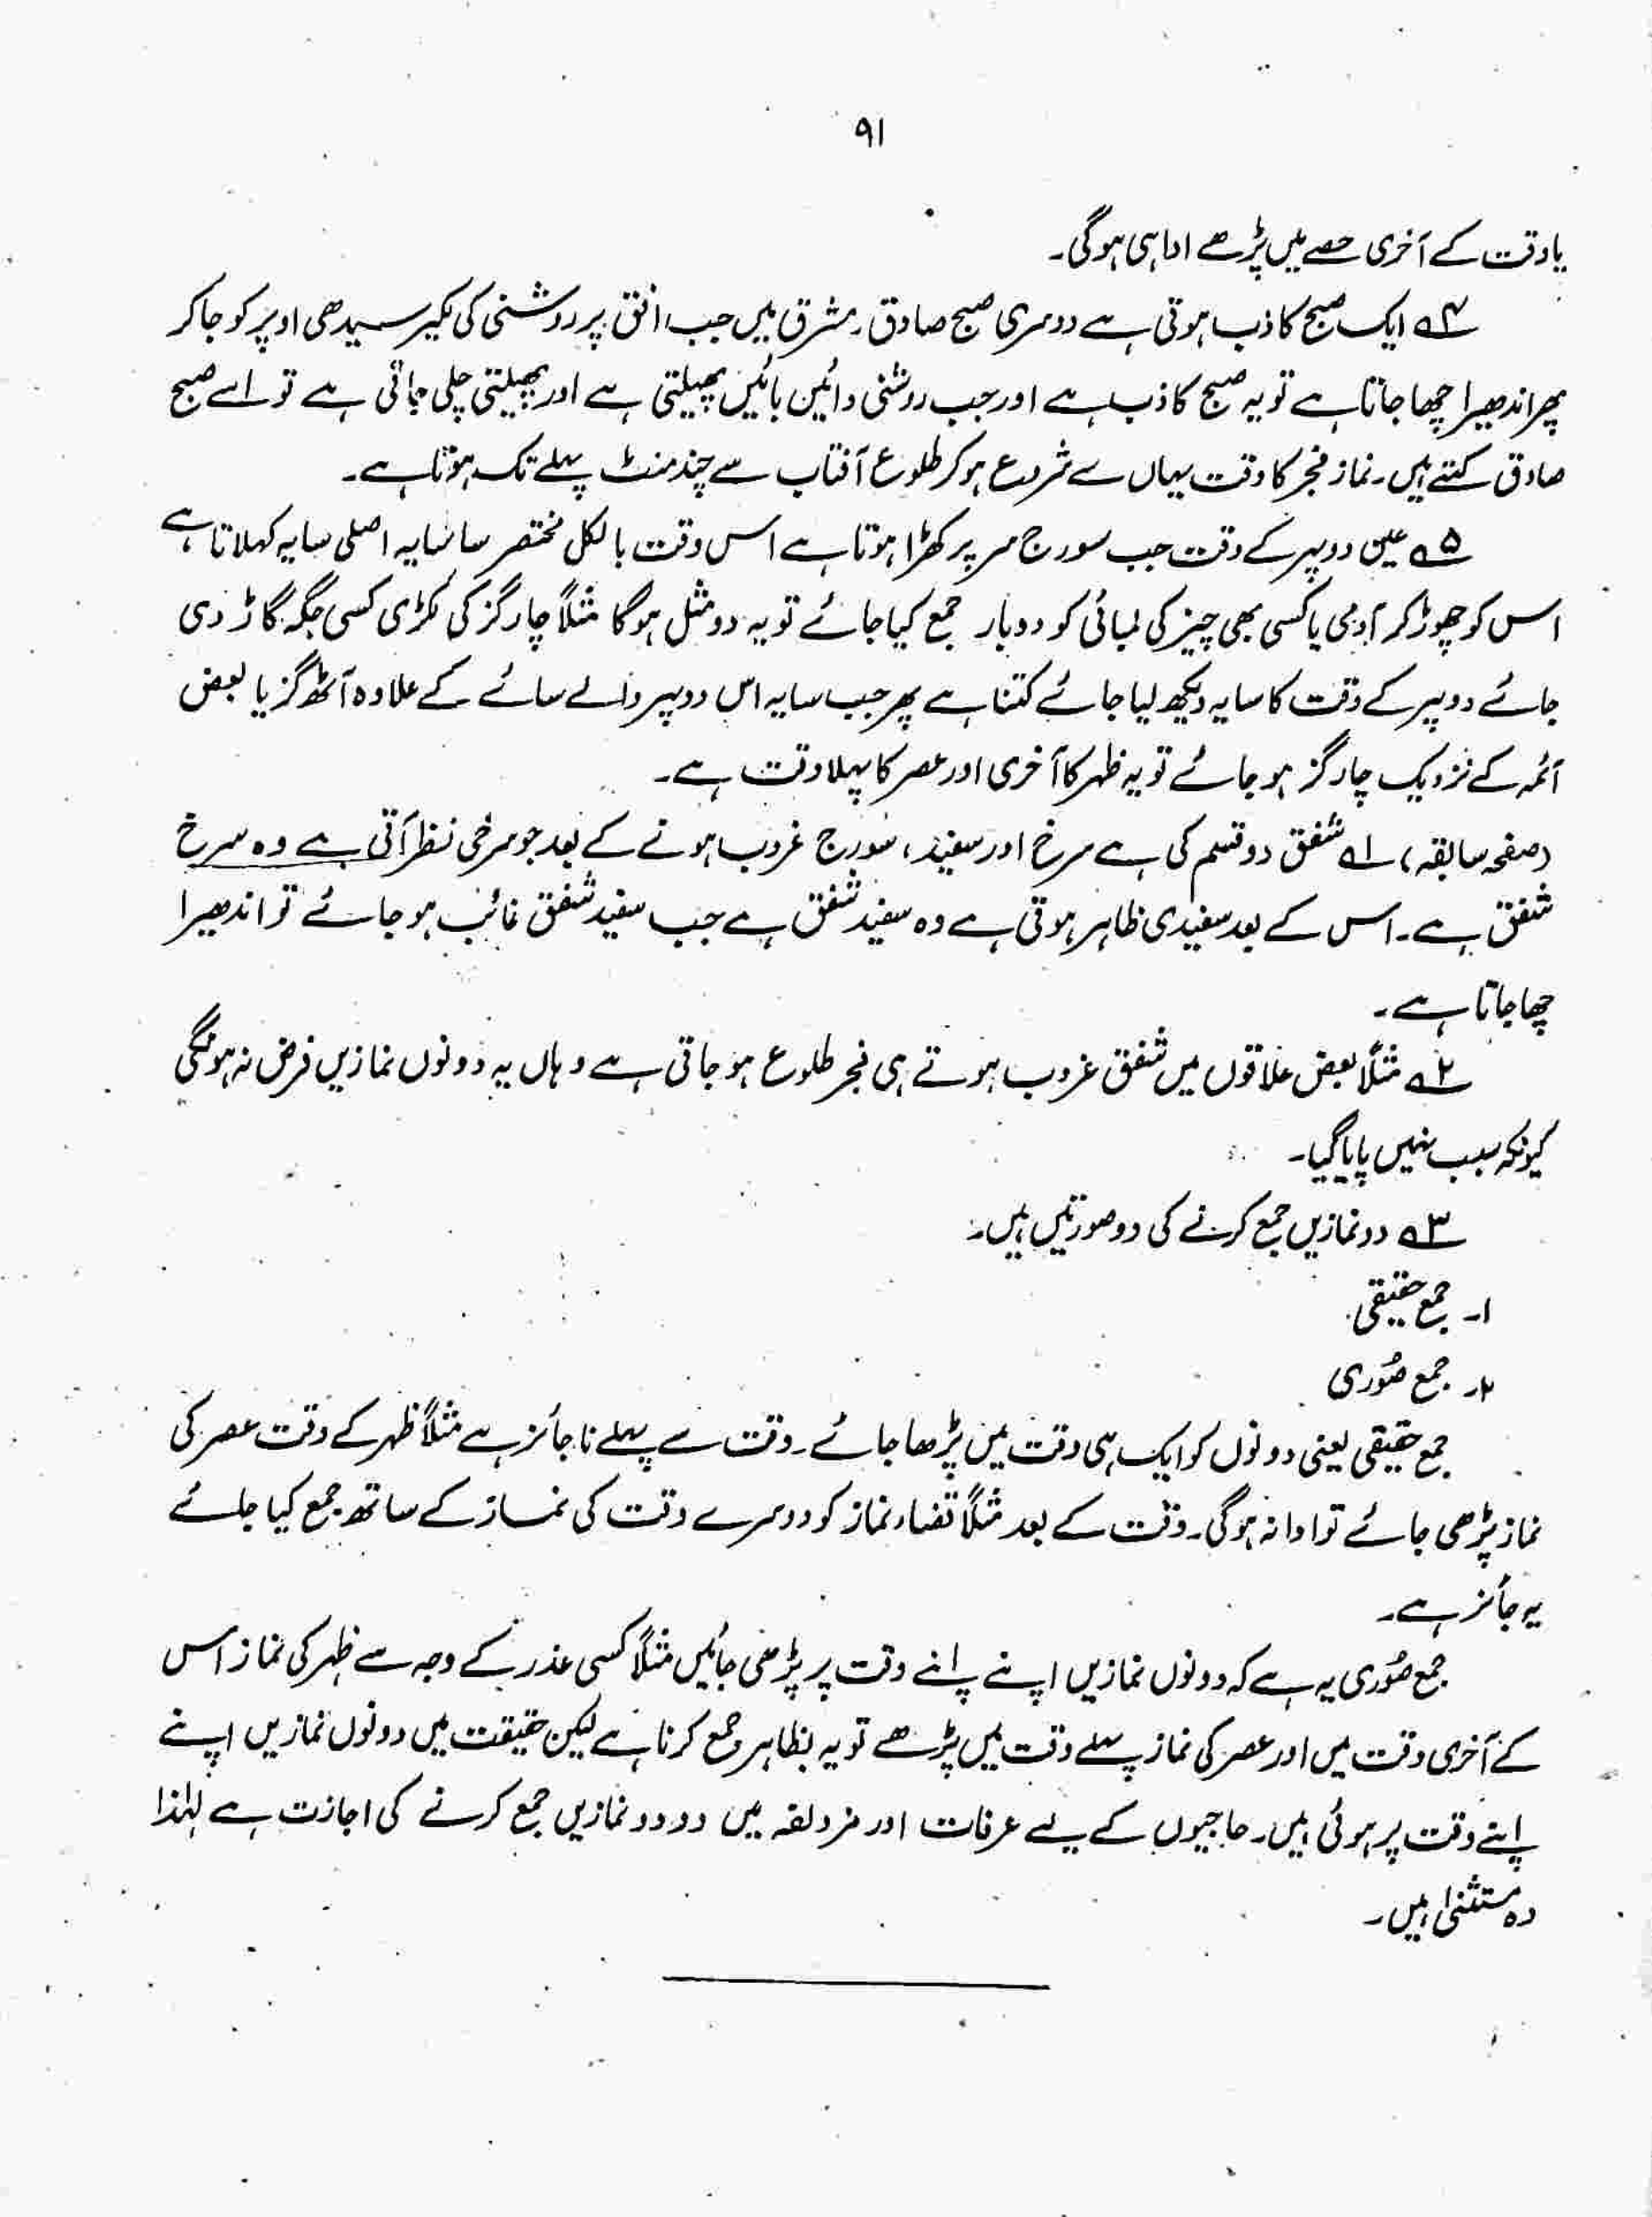 ۹۱
یا وقت کے آخری حصے میں پڑھے ادا ہی ہوگی۔
۴؎ ایک صبح کاذب ہوتی ہے دوسری صبح صادق۔ مشرق میں جب افق پر روشنی کی لکیر سیدھی اوپر کو جا کر
پھر اندھیرا چھا جاتا ہے تو یہ صبح کاذب ہے اور جب روشنی دائیں بائیں پھیلتی ہے اور پھیلتی چلی جاتی ہے تو اسے صبح
صادق کہتے ہیں۔ نماز فجر کا وقت یہاں سے شروع ہو کر طلوع آفتاب سے چند منٹ پہلے تک ہوتا ہے۔
۵؎ عین دوپہر کے وقت جب سورج سر پر کھڑا ہوتا ہے اس وقت بالکل مختصر سا سایہ اصلی سایہ کہلاتا ہے
اس کو چھوڑ کر آدمی یا کسی بھی چیز کی لمبائی کو دو بار جمع کیا جائے تو یہ دو مثل ہوگا مثلاً چار گز کی لکڑی کسی جگہ گاڑ دی
جائے دوپہر کے وقت کا سایہ دیکھ لیا جائے کتنا ہے پھر جب سایہ اس دوپہر والے سائے کے علاوہ آٹھ گز یا بعض
آئمہ کے نزدیک چار گز ہو جائے تو یہ ظہر کا آخری اور عصر کا پہلا وقت ہے۔
(صفحہ سابقہ) ۱؎ شفق دو قسم کی ہے سرخ اور سفید، سورج غروب ہونے کے بعد جو سرخی نظر آتی ہے وہ سرخ
شفق ہے۔ اس کے بعد سفیدی ظاہر ہوتی ہے وہ سفید شفق ہے جب سفید شفق غائب ہو جائے تو اندھیرا
چھا جاتا ہے۔
۲؎ مثلاً بعض علاقوں میں شفق غروب ہوتے ہی فجر طلوع ہو جاتی ہے وہاں یہ دونوں نمازیں فرض نہ ہونگی
کیونکہ سبب نہیں پایا گیا۔
۳؎ دو نمازیں جمع کرنے کی دو صورتیں ہیں۔
۱۔ جمع حقیقی
۲۔ جمع صُوری
جمع حقیقی یعنی دونوں کو ایک ہی وقت میں پڑھا جائے۔ وقت سے پہلے ناجائز ہے مثلاً ظہر کے وقت عصر کی
نماز پڑھی جائے تو ادا نہ ہوگی۔ وقت کے بعد مثلاً قضاء نماز کو دوسرے وقت کی نماز کے ساتھ جمع کیا جائے
یہ جائز ہے۔
جمع صُوری یہ ہے کہ دونوں نمازیں اپنے اپنے وقت پر پڑھی جائیں مثلاً کسی عذر کے وجہ سے ظہر کی نماز اس
کے آخری وقت میں اور عصر کی نماز پہلے وقت میں پڑھے تو یہ بظاہر جمع کرنا ہے لیکن حقیقت میں دونوں نمازیں اپنے
اپنے وقت پر ہوئی ہیں۔ حاجیوں کے لیے عرفات اور مزدلفہ میں دو دو نمازیں جمع کرنے کی اجازت ہے لہٰذا
وہ مستثنیٰ ہیں۔